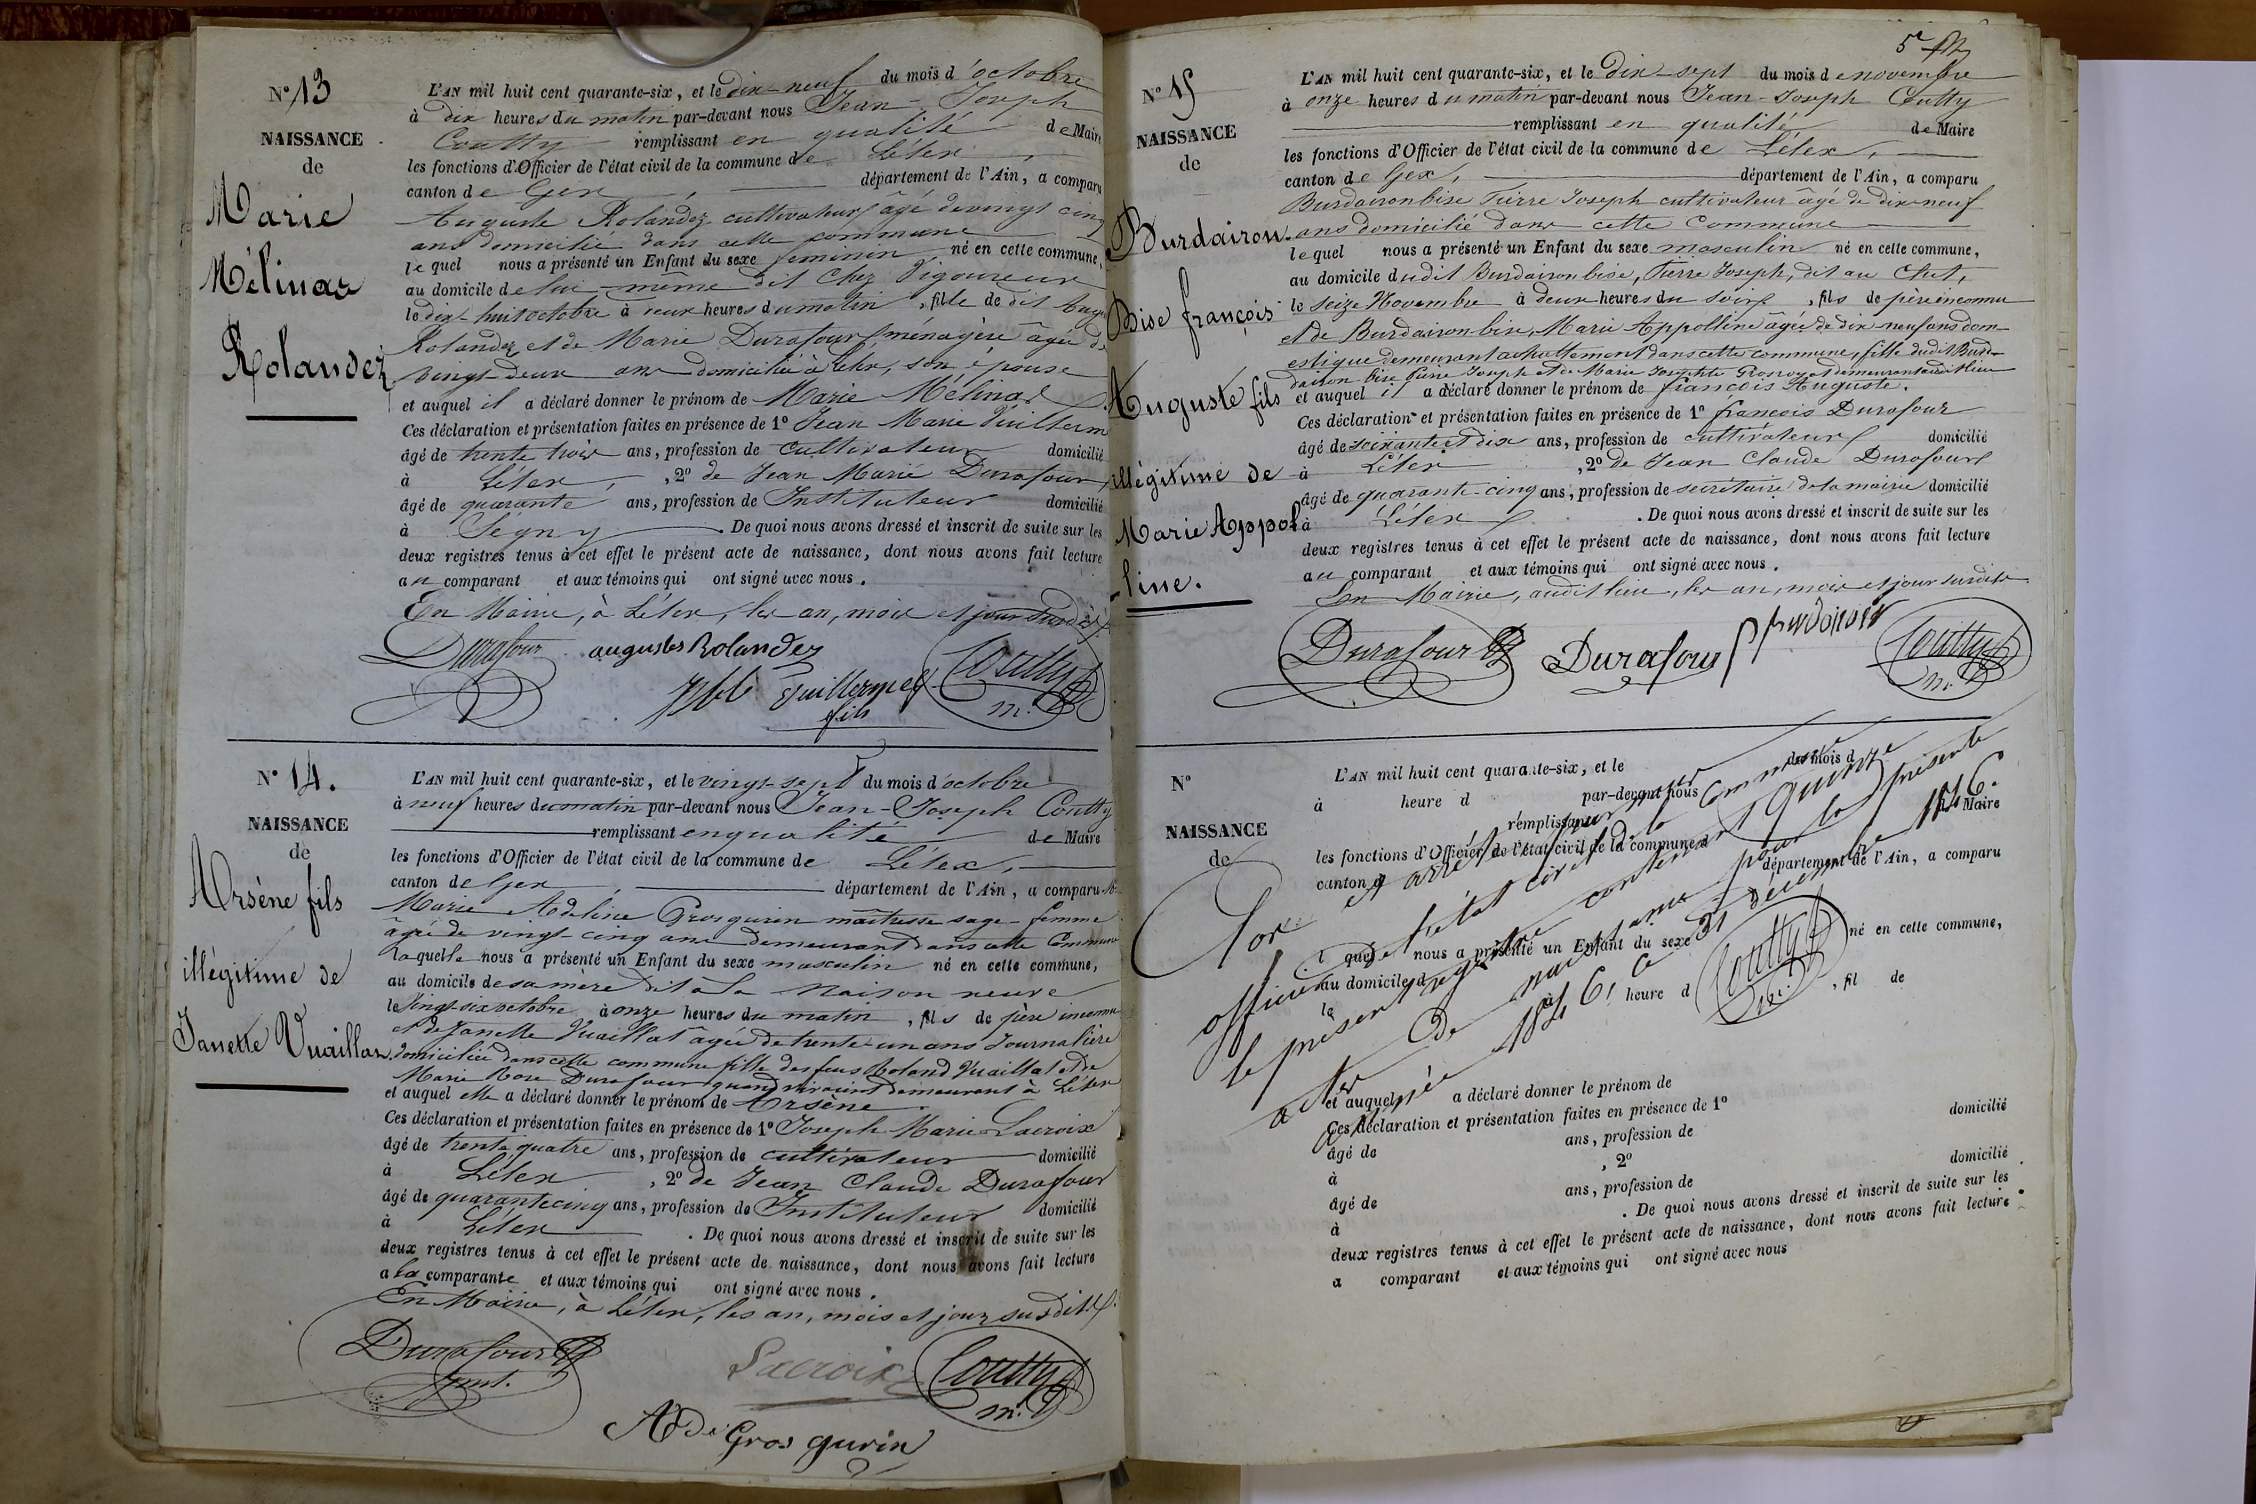 N° 13
NAISSANCE
de
Marie
Mélinas
Rolandez
L'AN mil huit cent quarante-six, et le dix-neuf du mois d'octobre
à dix heures du matin par-devant nous Jean-Joseph
Coutty remplissant en qualité de Maire
les fonctions d'Officier de l'état civil de la commune de Lélex,
canton de Gex, département de l'Ain, a comparu
Auguste Rolandez cultivateur âgé de vingt cinq
ans domicilié dans cette commune
lequel nous a présenté un Enfant du sexe féminin, né en cette commune,
au domicile de lui-même dit Chez Vigoureux
le dix-huit octobre à neuf heures du matin, fille de dit Augu
Rolandez et de Marie Durafour ménagère âgée de
vingt-deux ans domiciliée à Lélex, son épouse
et auquel il a déclaré donner le prénom de Marie Mélinas
Ces déclaration et présentation faites en présence de 1° Jean Marie Vuillerm
âgé de trente trois ans, profession de cultivateur domicilié
à Lélex, 2° de Jean Marie Durafour,
âgé de quarante ans, profession de Instituteur domicilié
à Ségny. De quoi nous avons dressé et inscrit de suite sur les
deux registres tenus à cet effet le présent acte de naissance, dont nous avons fait lecture
au comparant et aux témoins qui ont signé avec nous.
En Mairie, à Lélex, les an, mois et jour susdits
Durafour auguste Rolandez Coutty
Vuillermet m.
fils
N° 14.
NAISSANCE
de
Arsène fils
illégitime de
Janette Vuaillat
L'AN mil huit cent quarante-six, et le vingt-sept du mois d'octobre
à neuf heures du matin par-devant nous Jean-Joseph Coutty
remplissant en qualité de Maire
les fonctions d'Officier de l'état civil de la commune de Lélex,
canton de Gex, département de l'Ain, a comparu
Marie Adeline Grosgurin maîtresse sage-femme
âgée de vingt-cinq ans demeurant dans cette Commune
laquelle nous a présenté un Enfant du sexe masculin né en cette commune,
au domicile de sa mère dit à la Maison neuve
le Vingt-six octobre à onze heures du matin, fils de père inconnu
et de Janette Vuaillat âgée de trente-un ans Journalière
domiciliée dans cette commune fille des feus Roland Vuaillat et de
Marie Rose Durafour quand vivaient demeurant à Lélex
et auquel elle a déclaré donner le prénom de Arsène.
Ces déclaration et présentation faites en présence de 1° Joseph Marie Lacroix
âgé de trente quatre ans, profession de cultivateur domicilié
à Lélex, 2° de Jean Claude Durafour
âgé de quarante cinq ans, profession de Instituteur domicilié
à Lélex. De quoi nous avons dressé et inscrit de suite sur les
deux registres tenus à cet effet le présent acte de naissance, dont nous avons fait lecture
a la comparante et aux témoins qui ont signé avec nous.
En Mairie, à Lélex, les an, mois et jour susdits.
Durafour Lacroix Coutty
m.
Ade Gros gurin
5e
N° 15
NAISSANCE
de
Burdairon
Bise françois
Auguste fils
illégitime de
Marie Appol
-line.
L'AN mil huit cent quarante-six, et le dix-sept du mois de novembre
à onze heures du matin par-devant nous Jean-Joseph Coutty
remplissant en qualité de Maire
les fonctions d'Officier de l'état civil de la commune de Lélex,
canton de Gex, département de l'Ain, a comparu
Burdaironbise Pierre Joseph cultivateur âgé de dix-neuf
ans domicilié dans cette Commune
lequel nous a présenté un Enfant du sexe masculin né en cette commune,
au domicile dudit Burdaironbise, Pierre Joseph, dit au Chut,
le seize Novembre à deux heures du soir, fils de père inconnu
et de Burdaironbise, Marie Appolline âgée de dix-neuf ans dom-
estique demeurant actuellement dans cette commune, fille dudit Burd-
dairon bise Pierre Joseph et de Marie Josephte
et auquel il a déclaré donner le prénom de françois Auguste.
Ces déclaration et présentation faites en présence de 1° françois Durafour
âgé de soixante et dix ans, profession de cultivateur domicilié
à Lélex, 2° de Jean Claude Durafour
âgé de quarante-cinq ans, profession de secrétaire de la mairie domicilié
à Lélex. De quoi nous avons dressé et inscrit de suite sur les
deux registres tenus à cet effet le présent acte de naissance, dont nous avons fait lecture
au comparant et aux témoins qui ont signé avec nous.
En Mairie, audit lieu, les an, mois et jour susdits
Durafour Durafour Coutty
m.
N°
NAISSANCE
de
L'AN mil huit cent quarante-six, et le du mois d
à heure d par-devant nous
remplissant de Maire
les fonctions d'Officier de l'état civil de la commune d
canton d département de l'Ain, a comparu
l quel nous a présenté un Enfant du sexe né en cette commune,
au domicile d
le à heure d , fil de
et auquel a déclaré donner le prénom de
Ces déclaration et présentation faites en présence de 1°
âgé de ans, profession de domicilié
à , 2°
âgé de ans, profession de domicilié
à . De quoi nous avons dressé et inscrit de suite sur les
deux registres tenus à cet effet le présent acte de naissance, dont nous avons fait lecture
a comparant et aux témoins qui ont signé avec nous.
Clos et arrêté par nous
officier de l'état civil de la commune
le présent registre contenant quinze
actes de naissance pour la présente
année 1846, ce 31 décembre 1846.
Coutty